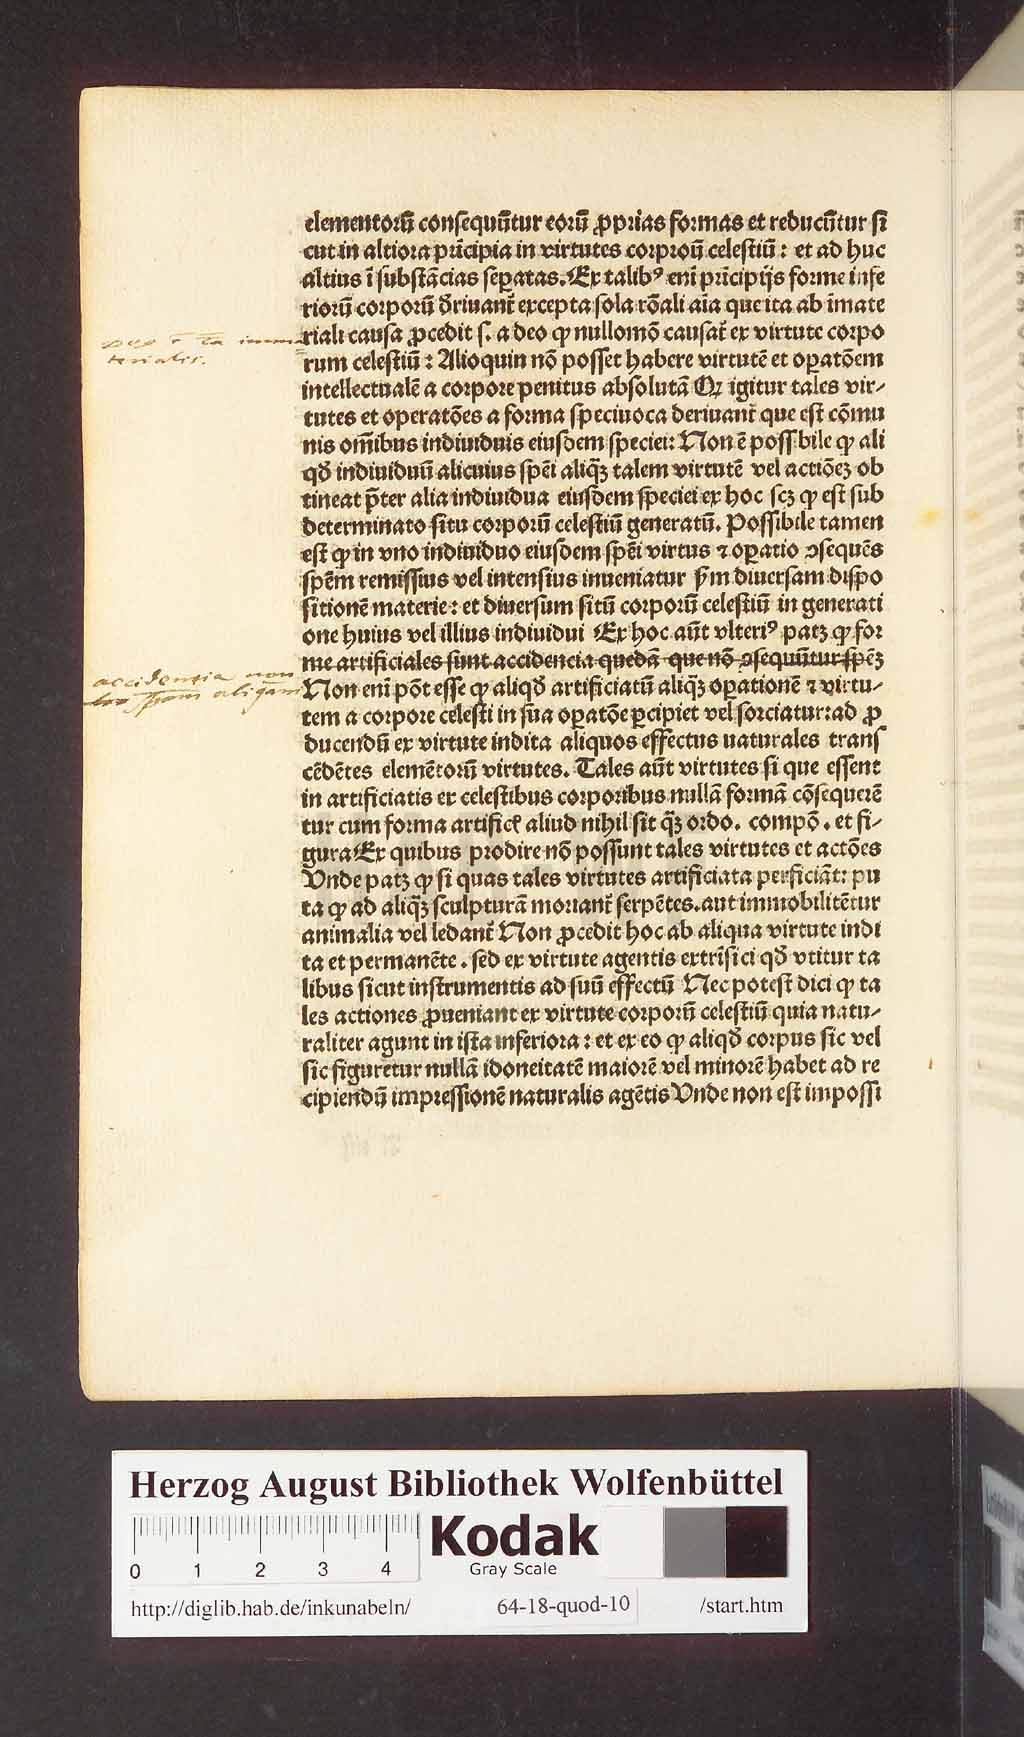 elementorū consequūtur eorū ꝓprias formas et reducūtur si
cut in altiora prīcipia in virtutes corproū celestiū : et ad huc
altius ī substācias seꝑatas. Ex talibꝰ eni prīcipijs forme infe
rioru corporū driuant̄ excepta sola rōali aīa que ita ab īmate
riali causa ꝓcedit s. a deo ꝙ nullomō causat̄ ex virtute corpo
rum celestiū : Alioquin nō posset habere virtutē et oꝑatōem
intellectualē a corpore penitus absolutā Qꝫ igitur tales vir⸗
tutes et operatōes a forma speciuoca deriuant̄ que est cōmu
nis om̄ibus indiuiduis eiusdem speciei: Non ē possibile ꝙ ali
qd̄ indiuiduū alicuius spēi aliq̄ꝫ talem virtutē vel actiōeꝫ ob
tineat p̄ter alia indiuidua eiusdem speciei ex hoc scꝫ ꝙ est sub
determinato situ corporū celestiū generatū. Possibile tamen
est ꝙ in vno indiuiduo eiusdem spēi virtus ⁊ oꝑatio ꝯsequēs
spēm remissius vel intensius inueniatur s̄m diuersam dispo
sitionē materie: et diuersum sitū corporū celestiū in generati
one huius vel illius indiuidui Ex hoc aūt vlteriꝰ patꝫ ꝙ for
me artificiales sunt accidencia quedā que nō ꝯsequūtur spēꝫ
Non eni pōt esse ꝙ aliqd̄ artificiatū aliq̄ꝫ oꝑationē ⁊ virtu⸗
tem a corpore celesti in sua oꝑatōe ꝑcipiet vel sorciatur: ad ꝓ
ducendū ex virtute indita aliquos effectus naturales trans
cēdētes elemētorū virtutes. Tales aūt virtutes si que essent
in artificiatis ex celestibus corporibus nullā formā cōsequerē
tur cum forma artific̄ aliud nihil sit q̄ꝫ ordo. compō. et fi⸗
gura Ex quibus prodire nō possunt tales virtutes et actōes
Vnde patꝫ ꝙ si quas tales virtutes artificiata perficiāt: pu
ta ꝙ ad aliq̄ꝫ sculpturā moriant̄ serpētes. aut immobilitētur
animalia vel ledant̄ Non ꝓcedit hoc ab aliqua virtute indi
ta et permanēte. sed ex virtute agentis extrīsici qd̄ vtitur ta
libus sicut instrumentis ad suū effectū Nec potest dici ꝙ ta
les actiones ꝓueniant ex virtute corporū celestiū quia natu⸗
raliter agunt in ista inferiora: et ex eo ꝙ aliqd̄ corpus sic vel
sic figuretur nullā idoneitatē maiorē vel minorē habet ad re
cipiendū impressionē naturalis agētis Vnde non est impossi
terialis.
accidentia non
Herzog August Bibliothek Wolfenbüttel
0 1 2 3 4
Kodak
Gray Scale
http://diglib.hab.de/inkunabeln/ 64-18-quod-10 /start.htm